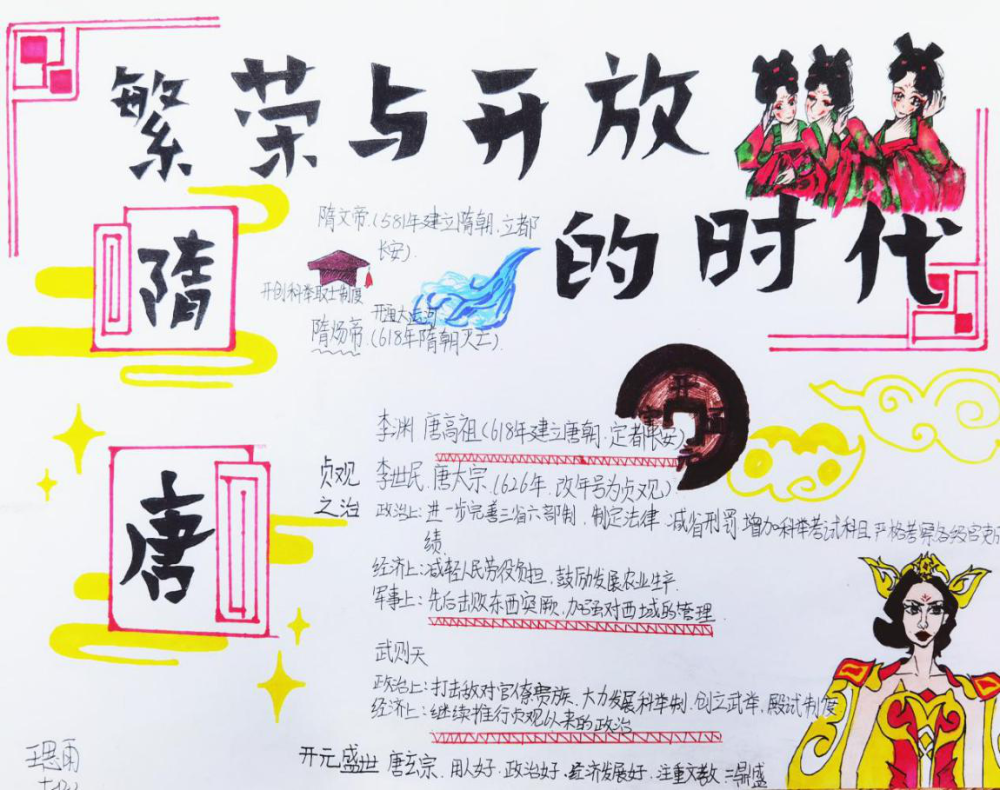 繁荣与开放
的时代
隋
隋文帝.(581年建立隋朝.立都
长安).
开创科举取士制度
开通大运河
隋炀帝.(618年隋朝灭亡).
唐
开
李渊 唐高祖(618年建立唐朝.定都长安)
贞观
之治
李世民.唐太宗.(626年.改年号为贞观)
政治上:进一步完善三省六部制,制定法律,减省刑罚.增加科举考试科目 严格考察各级官
绩.
经济上:减轻人民劳役负担,鼓励发展农业生产.
军事上:先后击败东西突厥,加强对西域的管理
武则天
政治上:打击敌对官僚贵族、大力发展科举制.创立武举、殿试制度
经济上:继续推行贞观以来的政治
开元盛世 唐玄宗.用人好.政治好.经济发展好.注重文教.鼎盛
王思雨